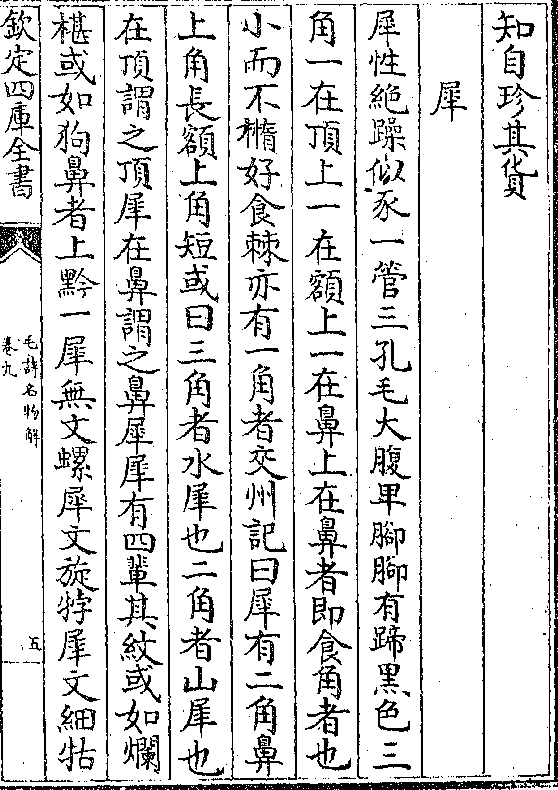 知自珍其貨
犀
犀性絶躁似豕一管三孔毛大腹卑腳腳有蹄黑色三
角一在頂上一在額上一在鼻上在鼻者即食角者也
小而不橢好食棘亦有一角者交州記曰犀有二角鼻
上角長額上角短或曰三角者水犀也二角者山犀也
在頂謂之頂犀在鼻謂之鼻犀犀有四輩其紋或如爛
椹或如狗鼻者上黔一犀無文螺犀文旋牸犀文細牯
欽定四庫全書
毛詩名物解
卷九
五